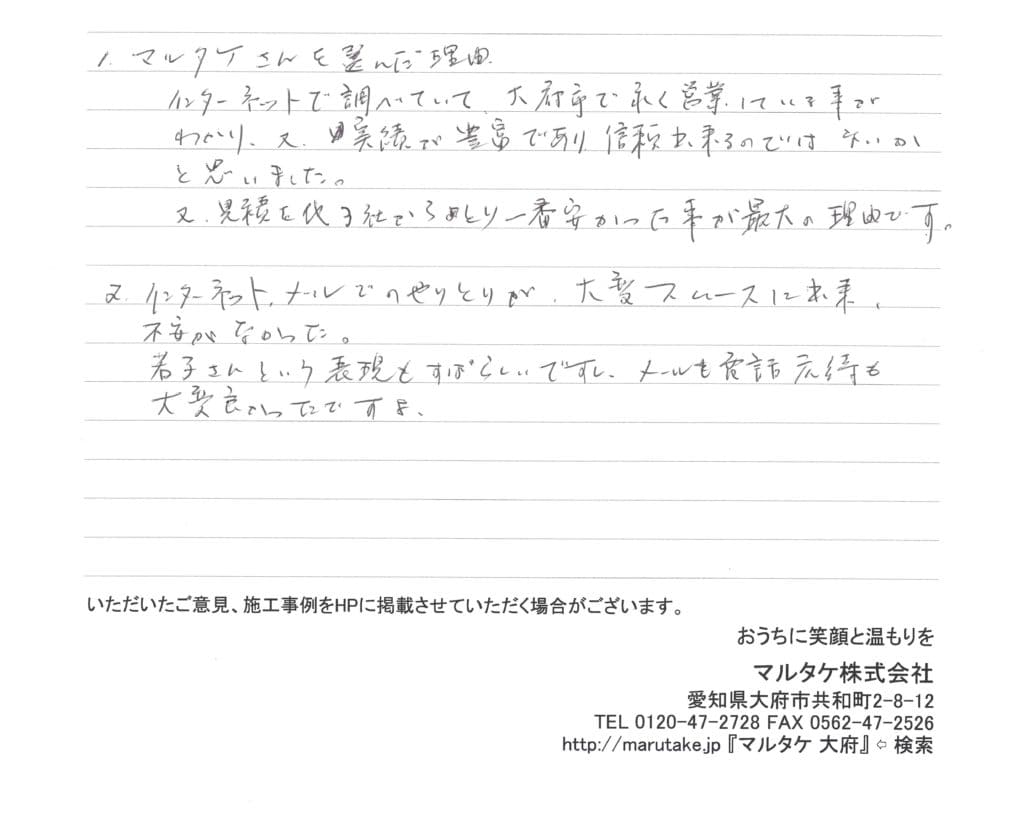 1. マルタケさんを選んだ理由.
インターネットで調べていて、大府市で永く営業している事が
わかり、又、実績が豊富であり信頼出来るのではないかと
と思いました。
又、見積を他 社からもとり一番安かった事が最大の理由です。
2. インターネット、メールでのやりとりが、大変スムースに出来、
不安がなかった。
若子さんという表現もすばらしいですし、メールも電話応待も
大変良かったですよ、
いただいたご意見、施工事例をHPに掲載させていただく場合がございます。
おうちに笑顔と温もりを
マルタケ株式会社
愛知県大府市共和町2-8-12
TEL 0120-47-2728 FAX 0562-47-2526
http://marutake.jp『マルタケ 大府』⇦ 検索